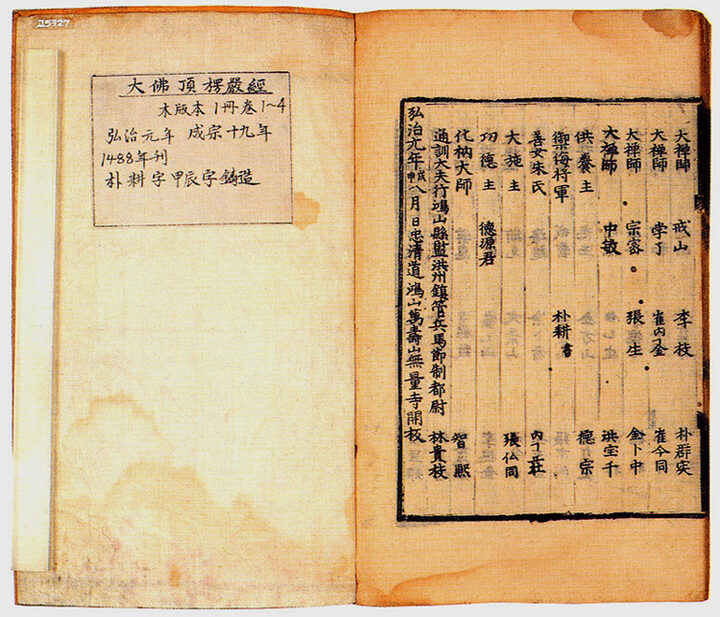 5327
大佛頂楞嚴經
木版本 1冊卷1~4
弘治元年 成宗十九年
1488年刊
朴耕字 甲辰字鑄造
大禪師 戒山 李枝 朴群实
大禪師 学子 崔內金 崔今同
大禪師 宗宻 張 生 金卜中
大禪師 中敏 洪宝千
供養主 德宗
禦海将軍 朴耕書
善女朱氏
大施主 張仏同
功德主 德源君
化衲大師 智熙
通訓大夫行鴻山縣監洪州鎮管兵馬節制都尉 林貴枝
弘治元年戊申八月日忠清道鴻山萬壽山無量寺開板